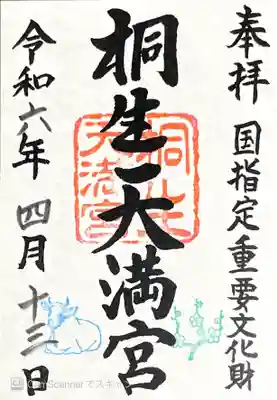 奉拝 国指定重要文化財
桐生天満宮
令和六年 四月 十三日
CamScannerでスキャン